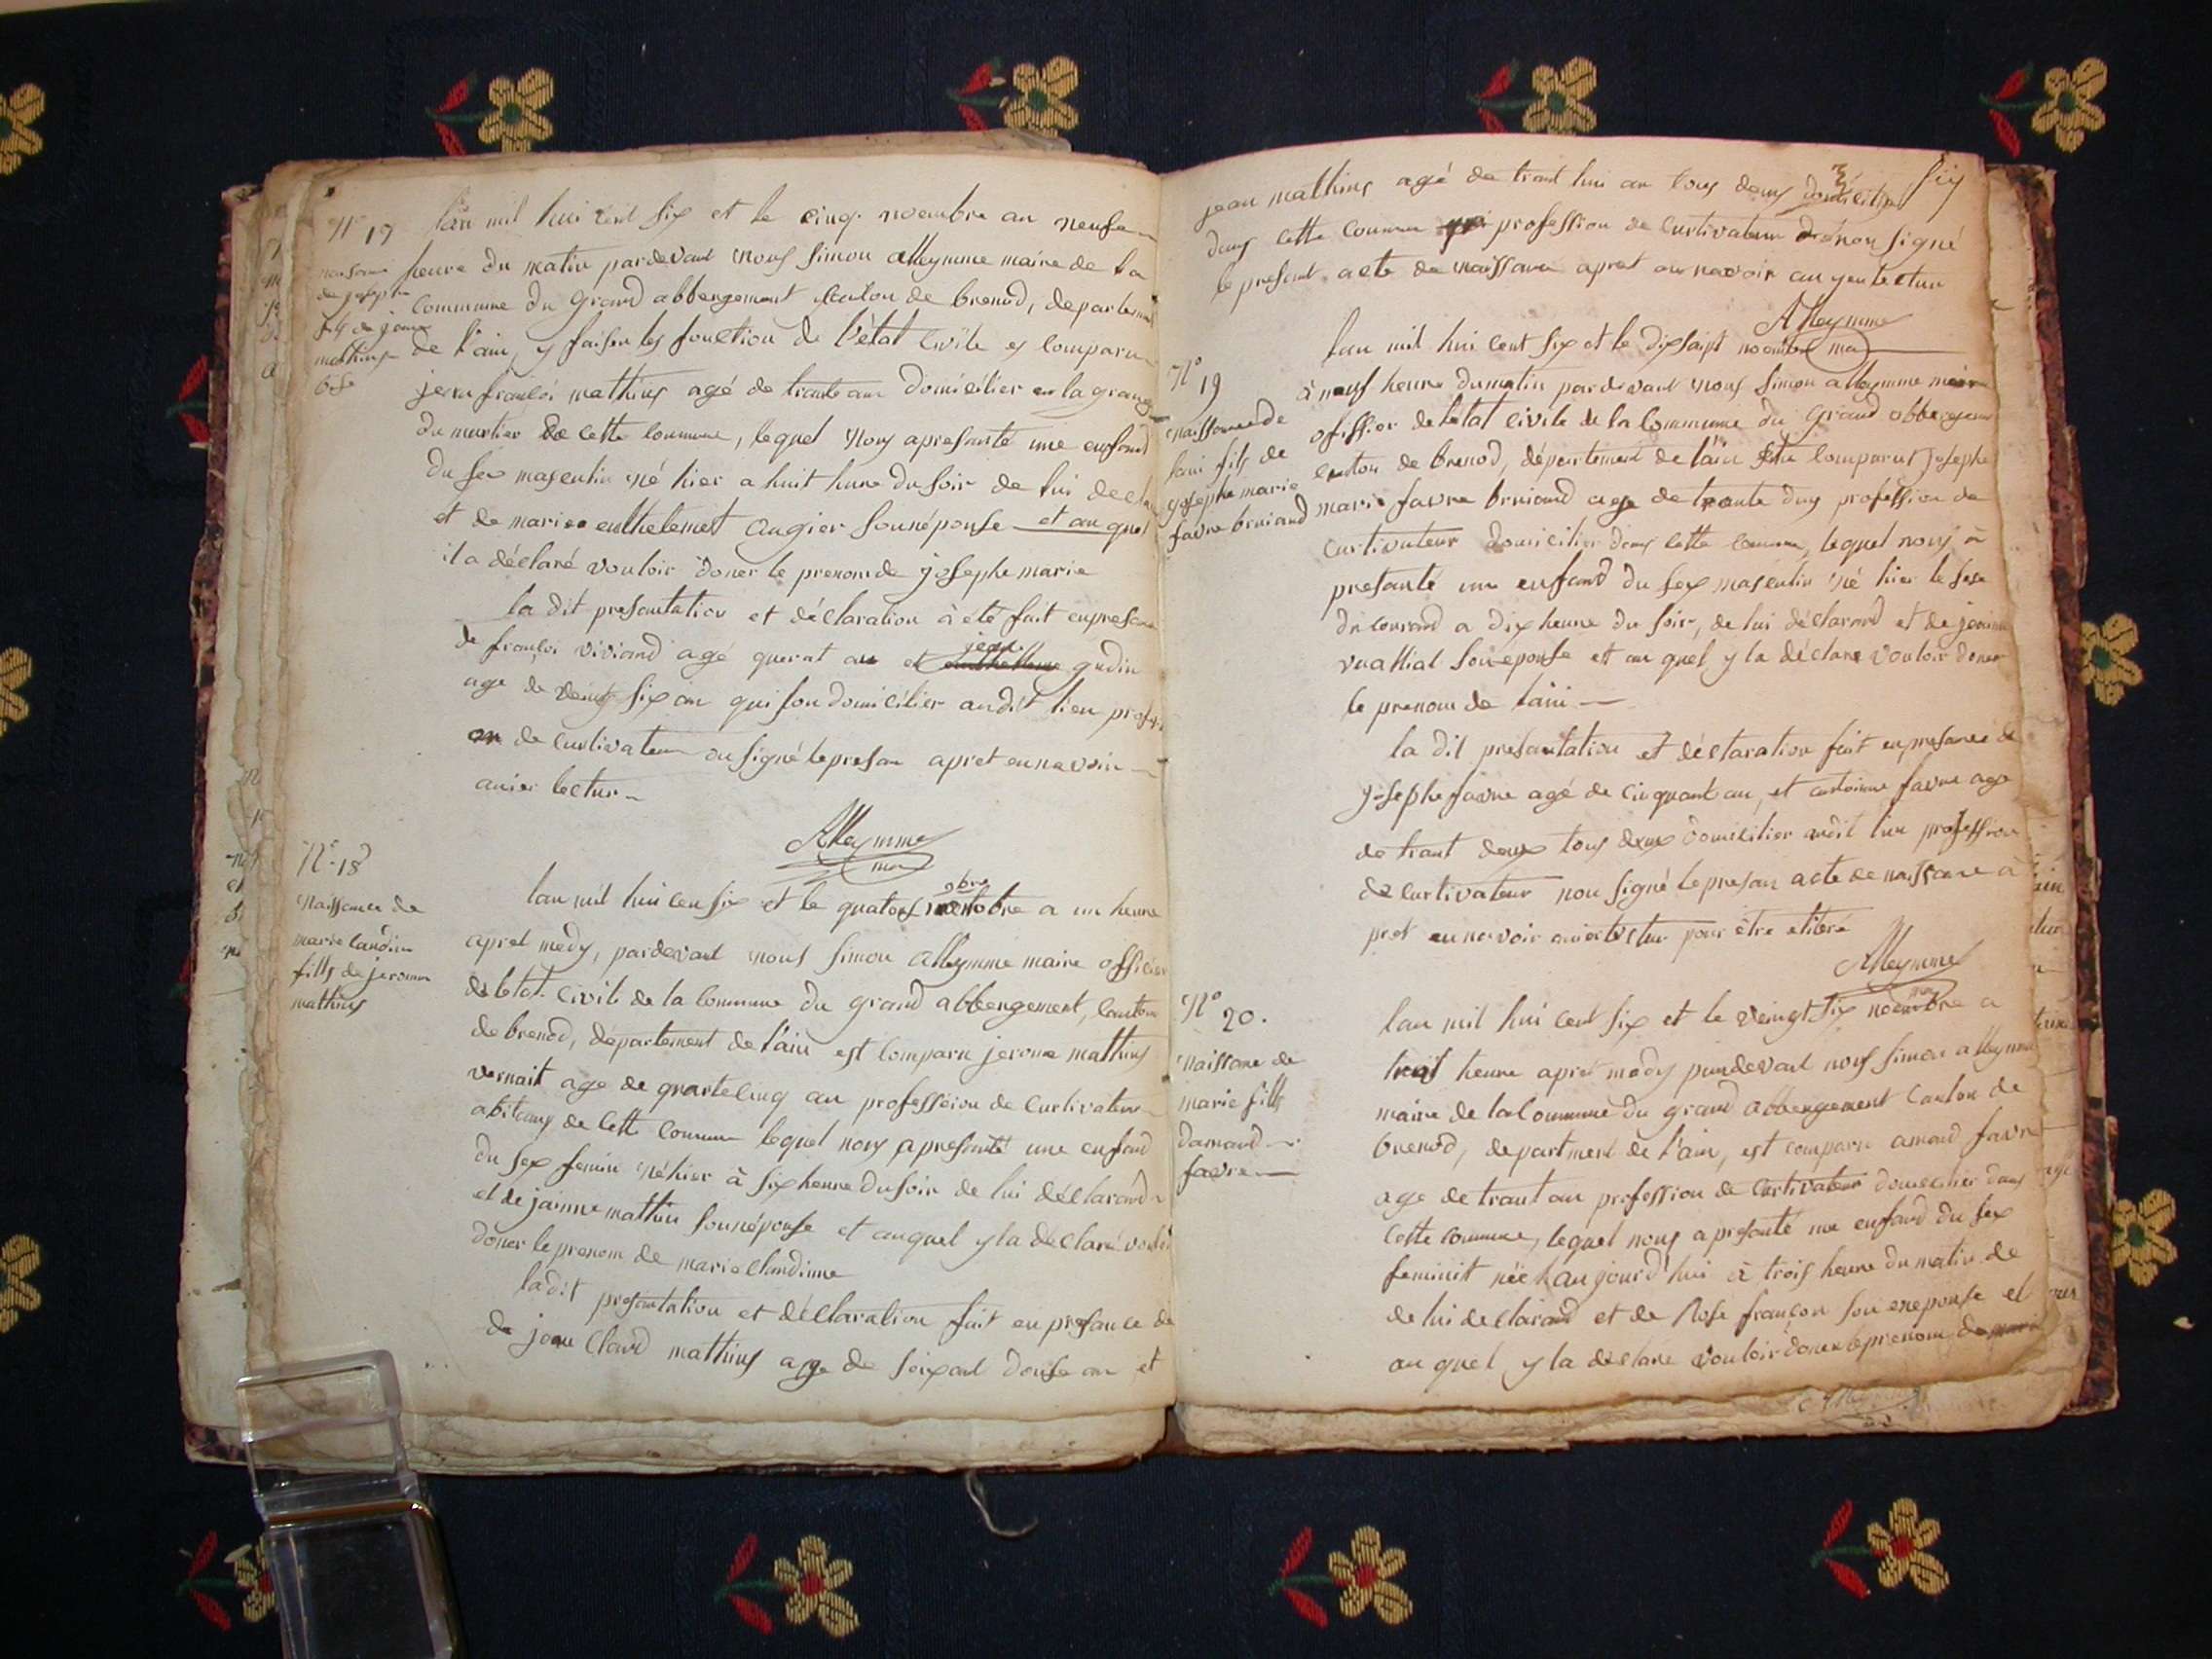 N° 17
naissance
de joseph
fils de jean
mathieus
lan mil hui cent six et le cinq novembre au neufe
heure du matin pardevant nous simon alleymme maire de la
commune du Grand abbergement canton de brenod, departement
de l'ain, y faisen les fonction de l'état civile es comparu
jean françoi mathieus agé de trante an domicilier en la grange
du murtier de cette commune, lequel nous apresanté une enfand
du sex masculin né hier a huit hure du soir de lui decla
et de marie enthelemet augier sonnéponse et au quel
il a déclaré vouloir doner le prenom de josephe marie
la dit presantation et déclaration à été fait en presan
de françoi viviand agé querat an et jean gudin
age de veingt six an qui son domicilier au dit lieu profesi
on de curtivateur on signé le presan apret en navoir
anier lectur
Alleymme
mai
N° 18
Naissance de
marie claudine
fills de jerome
mathieus
lan mil hui cen six et le quators 9bre a un heure
apret medy, pardevant nous simon alleymme maire officier
de letat civile de la commune du grand abbergement, canton
de brenod, département de l'ain est comparu jerome mathieus
vernait age de quarte cinq an profession de curtivateur
abitans de cette commune lequel nous apresanté une enfand
du sex femin né hier à six heure du soir de lui déclarand
et de jainne mathieu sonnéponse et auquel y la déclaré voulo
doner le prenom de marie claudinne
ladit presantation et déclaration fait en presance de
de jean claud mathieus age de soixant douse an et
jean mathieus agé de trant hui an tous deus domicilier
dans cette commune profession de curtivateur non signé
le presant acte de naissance apret en navoir an yeu lectur
Alleymme
mai
N° 19
naissance de
laui fils de
josephe marie
favre bruiand
lan mil hui cent six et le dixsaipt novembre
à neuf heure du matin pardevant nous simon alleymme maire
ofissier de letat civile de la commune du Grand abbergement
canton de brenod, département de l'ain comparut josephe
marie favre bruiand age de trante dus profession de
curtivateur domicilier dans cette commune, lequel nous a
presanté une enfand du sex masculin né hier le sese
du courand a dix heure du soir, de lui déclarand et de jeanne
vuallial son éponse et au quel y la déclaré vouloir doner
le prenom de laui
la dit présantation et déclaration fait en presance de
josephe favre agé de cinquant an, et antoinne favre age
de trant deux tous deux domicilier audit lieu profession
de curtivateur non signé le presan acte de naissance a
pret en navoir anier lectur pour être elibré
Alleymme
mai
N° 20.
naissane de
marie fills
damand
favre
lan mil hui cent six et le veingt six novembre a
trois heure apret mody pardevant nous simon alleymme
maire de la commune du grand abbengement canton de
brenod, department de l'ain, est comparu amand favre
age de trant an profession de curtivateur domicilier dans
cette commune, lequel nous apresanté une enfand du sex
feminit néé aujourd'hui à trois heure du matin de
de lui declarand et de Rose françon son éneponse et
au quel y la déclare vouloir doner le prenom de marie